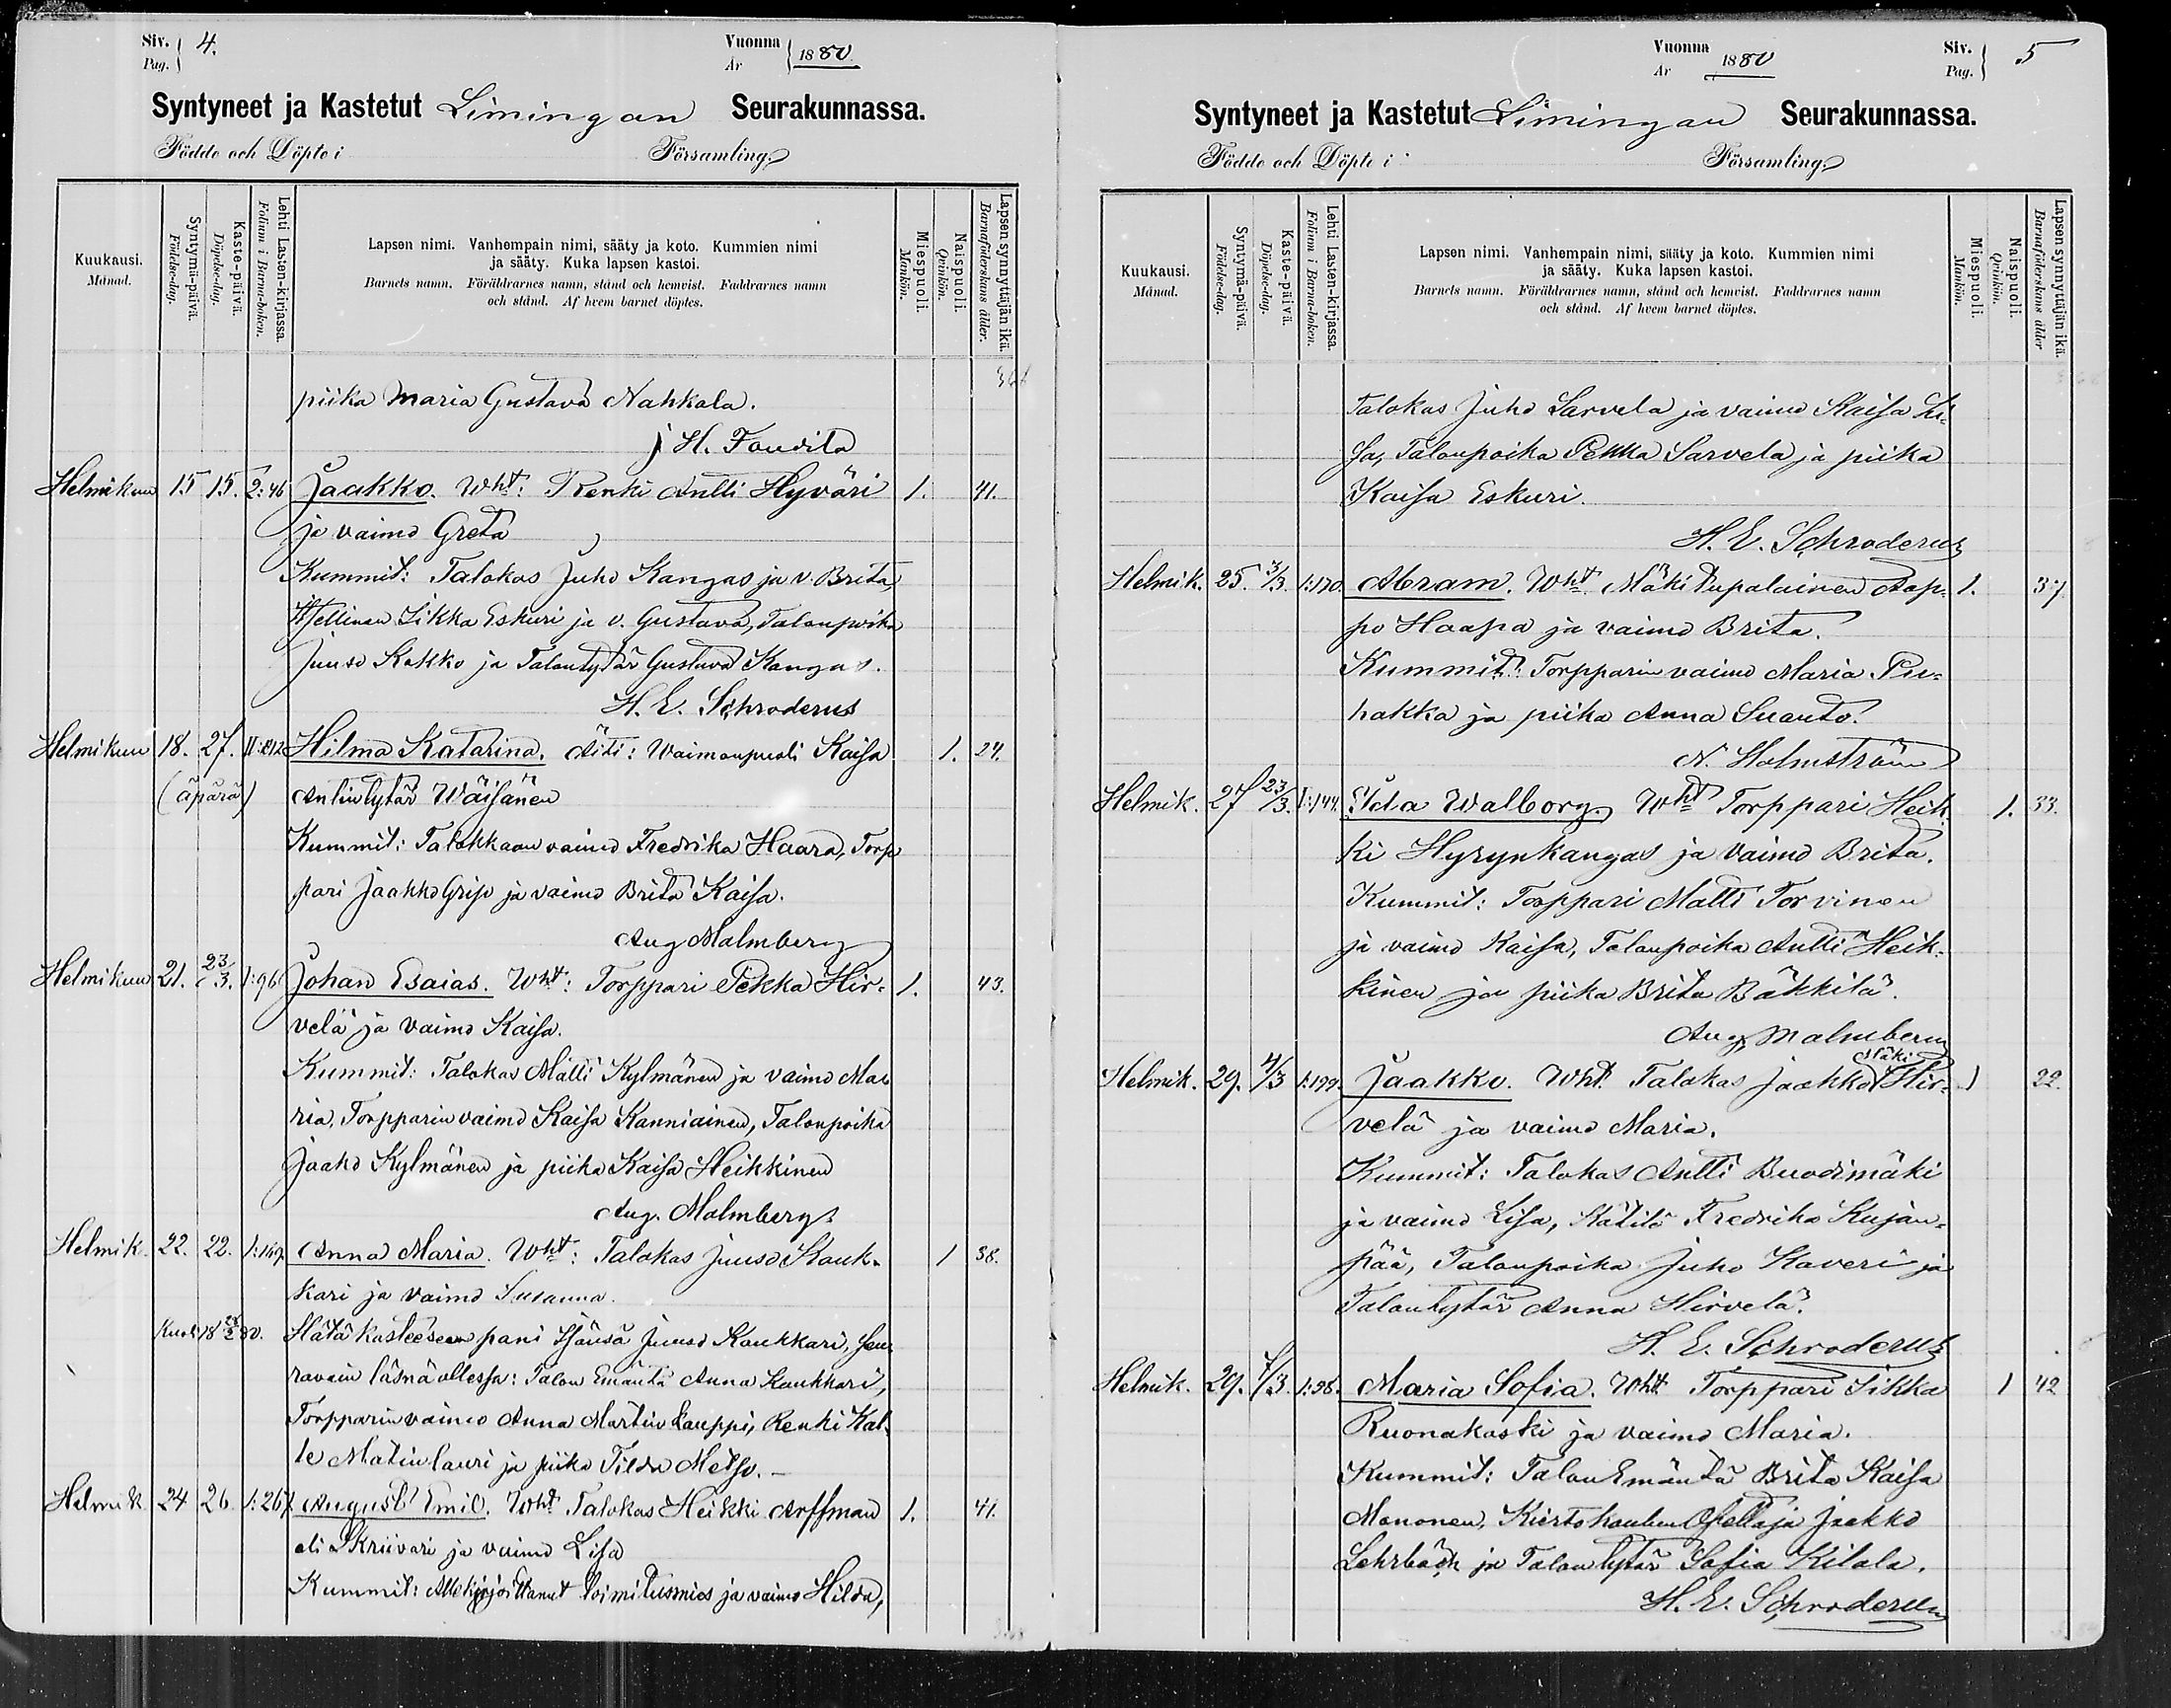 Siv. 4.
Pag.
Vuonna 1880
År
Syntyneet ja Kastetut Limingan Seurakunnassa.
Födde och Döpte i Församling.
Kuukausi.
Månad.
Syntymä-päivä.
Födelse-dag.
Kaste-päivä.
Döpelse-dag.
Lehti Lasten-kirjassa.
Folium i Barna-boken.
Lapsen nimi. Vanhempain nimi, sääty ja koto. Kummien nimi
ja sääty. Kuka lapsen kastoi.
Barnets namn. Föräldrarnes namn, stånd och hemvist. Faddrarnes namn
och stånd. Af hvem barnet döptes.
Miespuoli.
Mankön.
Naispuoli.
Qvinkön.
Lapsen synnyttäjän ikä.
Barnaföderskans ålder.
piika Maria Gustava Nahkala.
H. Foudila
Helmikuu 15 15. 2:46 Jaakko. Wht: Renki Antti Hyväri 1. 41.
ja vaimo Greta
Kummit: Talokas Juho Kangas ja v. Brita,
Itellinen Iikka Eskuri ja v. Gustava, Talonpoika
Juuso Kokko ja Talontytär Gustava Kangas.
H. E. Schroderus
Helmikuu 18. 27. Hilma Katarina. Äiti: Waimonpuoli Kaisa 1. 24.
(äpärä) Antintytär Wäisänen
Kummit: Talokkaan vaimo Fredrika Haara, Torp
pari Jaakko Grip ja vaimo Brita Kaisa.
Aug Malmberg
Helmikuu 21. 23/3. 1:96 Johan Esaias. Wht: Torppari Pekka Hir- 1. 43.
velä ja vaimo Kaisa.
Kummit: Talokas Matti Kylmänen ja vaimo Ma
ria, Torpparin vaimo Kaisa Kanniainen, Talonpoika
Jaako Kylmänen ja piika Kaisa Heikkinen
Aug. Malmberg
Helmik. 22. 22. 1:169 Anna Maria. Wht: Talokas Juuso Kauk- 1 38.
kari ja vaimo Susanna.
Hätäkasteeseen pani Juuso Kaukkari, seu
ravain läsnäollessa: Talon Emäntä Anna Kaukkari,
Torpparin vaimo Anna Martin Lauppi, Renki Kal-
le Matinlauri ja piika Tilda Metso.
Helmik. 24 26. 1:267. August Emil. Wht Talokas Heikki Arffman 1. 41.
eli Skriivari ja vaimo Lisa
Kummit: Allekirjoittanut toimitusmies ja vaimo Hilda,
Vuonna 1880
År
Siv. 5
Pag.
Syntyneet ja Kastetut Limingan Seurakunnassa.
Födde och Döpte i Församling.
Kuukausi.
Månad.
Syntymä-päivä.
Födelse-dag.
Kaste-päivä.
Döpelse-dag.
Lehti Lasten-kirjassa.
Folium i Barna-boken.
Lapsen nimi. Vanhempain nimi, sääty ja koto. Kummien nimi
ja sääty. Kuka lapsen kastoi.
Barnets namn. Föräldrarnes namn, stånd och hemvist. Faddrarnes namn
och stånd. Af hvem barnet döptes.
Miespuoli.
Mankön.
Naispuoli.
Qvinkön.
Lapsen synnyttäjän ikä.
Barnaföderskans ålder
Talokas Juho Sarvela ja vaimo Kaisa Li-
sa, Talonpoika Pekka Sarvela ja piika
Kaisa Eskuri.
H. E. Schroderus
Helmik. 25. 3/3. 1:170. Abram. Wht. Mäkitupalainen Aap- 1. 37
po Haapa ja vaimo Brita.
Kummit: Torpparin vaimo Maria Pu-
hakka ja piika Anna Suanto.
N. Holmström
Helmik. 27 23/3. 1:144. Ida Walborg. Wht Torppari Heik 1. 33.
ki Hyrynkangas ja vaimo Brita.
Kummit: Torppari Matti Torvinen
ja vaimo Kaisa, Talonpoika Antti Heik-
kinen ja piika Brita Bäkkilä.
Aug Malmberg
Helmik. 29. 4/3 1:199. Jaakko. Wht. Talokas Jaakko Mäki Hir- 1 22.
velä ja vaimo Maria.
Kummit: Talokas Antti Buodimäki
ja vaimo Lisa, Kätilö Fredrika Kujan-
pää, Talonpoika Juho Kaveri ja
Talontytär Anna Hirvelä.
H. E. Schroderus
Helmik. 29. 7/3. 1:98. Maria Sofia. Wht Torppari Iikka 1 42
Ruonakoski ja vaimo Maria.
Kummit: Talon Emäntä Brita Kaisa
Mononen, Kiertokoulun Opettaja Jaakko
Lehrbäck ja Talontytär Sofia Kilala.
H. E. Schroderus